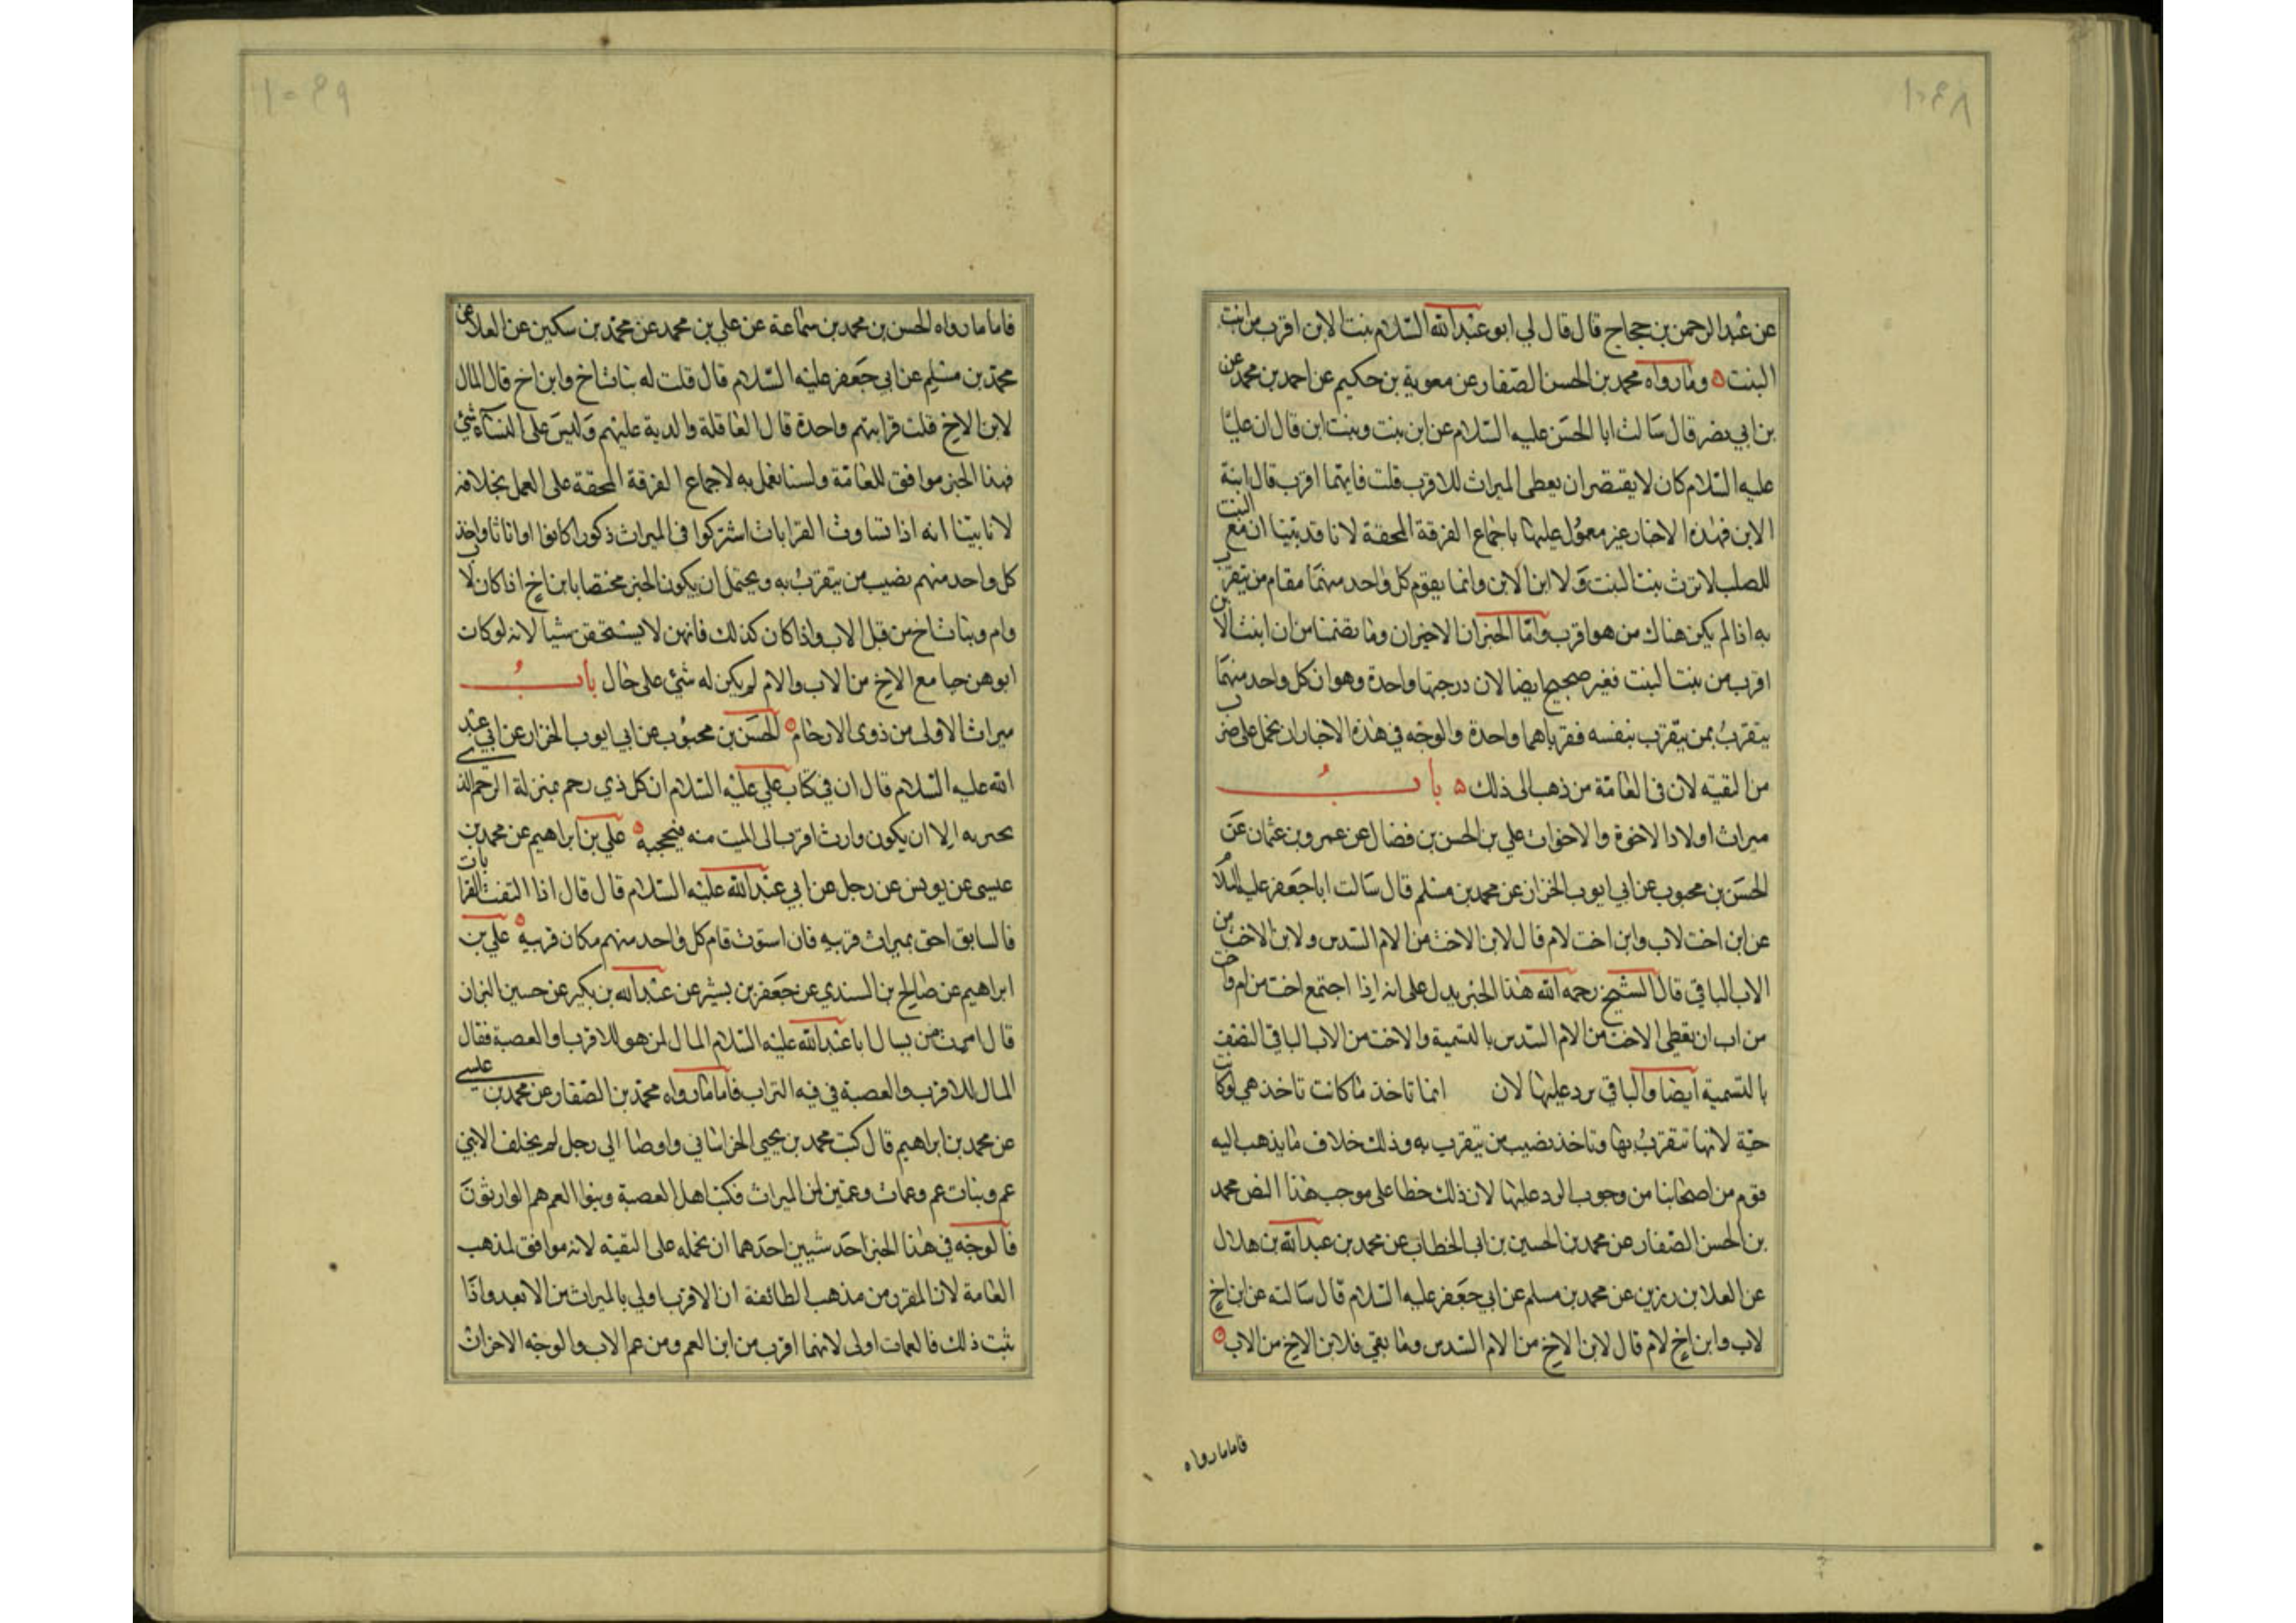 ١٠٤٨
عن عبد الرحمن بن حجاج قال قال لي ابو عبد الله السلام بنت الابن اقرب من ابنت
البنت ه وما رواه محمد بن الحسن الصفار عن معوية بن حكيم عن احمد بن محمد عن
بن ابي نصر قال سالت ابا الحسن عليه السلام عن ابن بنت وبنت ابن قال ان عليا
عليه السلام كان لا يقتصر ان يعطى الميراث للاقرب قلت فايتهما اقرب قال ابنة
الابن فهذه الاخبار غير معمول عليها باجماع الفرقة المحقة لانا قد بينا ان مع البنت
للصلب لا ترث بنت البنت ولا ابن الابن وانما يقوم كل واحد منهما مقام من يتقرب
به اذا لم يكن هناك من هو اقرب واما الخبران الاخيران وما تضمنا من ان ابنت الابن
اقرب من بنت البنت فغير صحيح ايضا لان درجتها واحدة وهو ان كل واحد منهما
يتقرب بمن يتقرب بنفسه فقرباهما واحدة والوجه في هذه الاخبار ان نحمل على ضرب
من التقيه لان في العامة من ذهب الى ذلك ه باب
ميراث اولاد الاخوة والاخوات علي بن الحسن بن فضال عن عمرو بن عثمان عن
الحسن بن محبوب عن ابي ايوب الخزان عن محمد بن مسلم قال سالت ابا جعفر عليه السلام
عن ابن اخت لاب وابن اخت لام قال لابن الاخت من الام السدس ولابن الاخت من
الاب الباقي قال الشيخ رحمه الله هذا الخبر يدل على انه اذا اجتمع اخت من ام واخت
من اب ان يعطى الاخت من الام السدس بالتسمية والاخت من الاب الباقي النصف
بالتسمية ايضا والباقي يرد عليها لان انما تاخذ ما كانت تاخذ هي لو كانت
حية لانها تتقرب بها وتاخذ نصيب من يتقرب به وذلك خلاف ما يذهب اليه
قوم من اصحابنا من وجوب الرد عليها لان ذلك خطا على موجب هذا النص محمد
بن الحسن الصفار عن محمد بن الحسين بن ابي الخطاب عن محمد بن عبد الله بن هلال
عن العلا بن رزين عن محمد بن مسلم عن ابي جعفر عليه السلام قال سالته عن ابن اخ
لاب وابن اخ لام قال لابن الاخ من الام السدس وما بقي فلابن الاخ من الاب ه
فاما ما رواه
١٠٤٩
فاما ما رواه الحسن بن محمد بن سماعة عن علي بن محمد عن محمد بن سكين عن العلا عن
محمد بن مسلم عن ابي جعفر عليه السلام قال قلت له بنات اخ وابن اخ قال المال
لابن الاخ قلت قرابتهم واحدة قال العاقلة والدية عليهم وليس على النساء شئ
فهذا الخبر موافق للعامة ولسنا نعمل به لاجماع الفرقة المحقة على العمل بخلافه
لانا بينا انه اذا تساوت القرابات اشتركوا في الميراث ذكورا كانوا او اناثا واخذ
كل واحد منهم نصيب من يتقرب به ويحتمل ان يكون الخبر مختصا بابن اخ اذا كان لاب
وام وبنات اخ من قبل الاب واذا كان كذلك فانهن لا يستحقن شيا لانه لو كان
ابوهن حيا مع الاخ من الاب والام لم يكن له شئ على حال باب
ميراث الاولى من ذوى الارحام ه الحسن بن محبوب عن ابي ايوب الخزاز عن ابي عبد
الله عليه السلام قال ان في كتاب علي عليه السلام ان كل ذي رحم بمنزلة الرحم الذي
يجر به الا ان يكون وارث اقرب الى الميت منه فيحجبه ه علي بن ابراهيم عن محمد بن
عيسى عن يونس عن رجل عن ابي عبد الله عليه السلام قال قال اذا التفت القرابات
فالسابق احق بميراث قريبه فان استوت قام كل واحد منهم مكان قريبه ه علي بن
ابراهيم عن صالح بن السندي عن جعفر بن بشير عن عبد الله بن بكير عن حسين البزان
قال امرت من يسال ابا عبد الله عليه السلام المال لمن هو للاقرب او العصبة فقال
المال للاقرب والعصبة في فيه التراب فاما ما رواه محمد بن الصفار عن محمد بن عيسى
عن محمد بن ابراهيم قال كتب محمد بن يحيى الخراساني واوصا الى رجل لم يخلف الا بني
عم وبنات عم وعمات وعمتين لمن الميراث فكتب اهل العصبة وبنوا العم هم الوارثون
فالوجه في هذا الخبر احد شيين احدهما ان نحمله على التقيه لانه موافق لمذهب
العامة لان المقرر من مذهب الطائفة ان الاقرب اولى بالميراث من الابعد واذا
ثبت ذلك فالعمات اولى لانهما اقرب من ابن العم ومن عم الاب والوجه الاخر ان